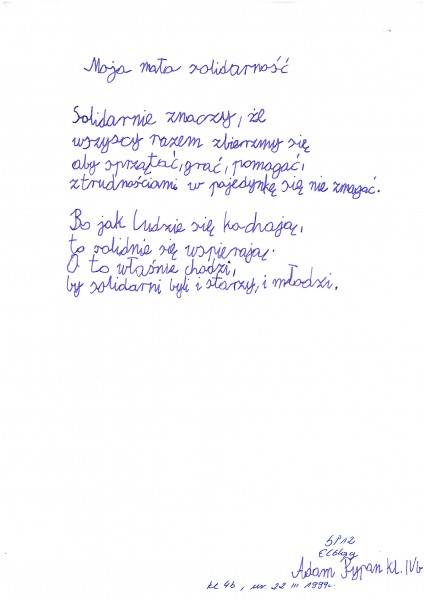 Moja mała solidarność
Solidarnie znaczy, że
wszyscy razem zbierzmy się
aby sprzątać, grać, pomagać,
ztrudnościami w pojedynkę się nie zmagać.
Bo jak ludzie się kochają,
to solidnie się wspierają.
O to właśnie chodzi,
by solidarni byli i starzy, i młodzi.
SP12
Elbląg
Adam kl. IVb
kl 4b, ur. 22 III 1999r.